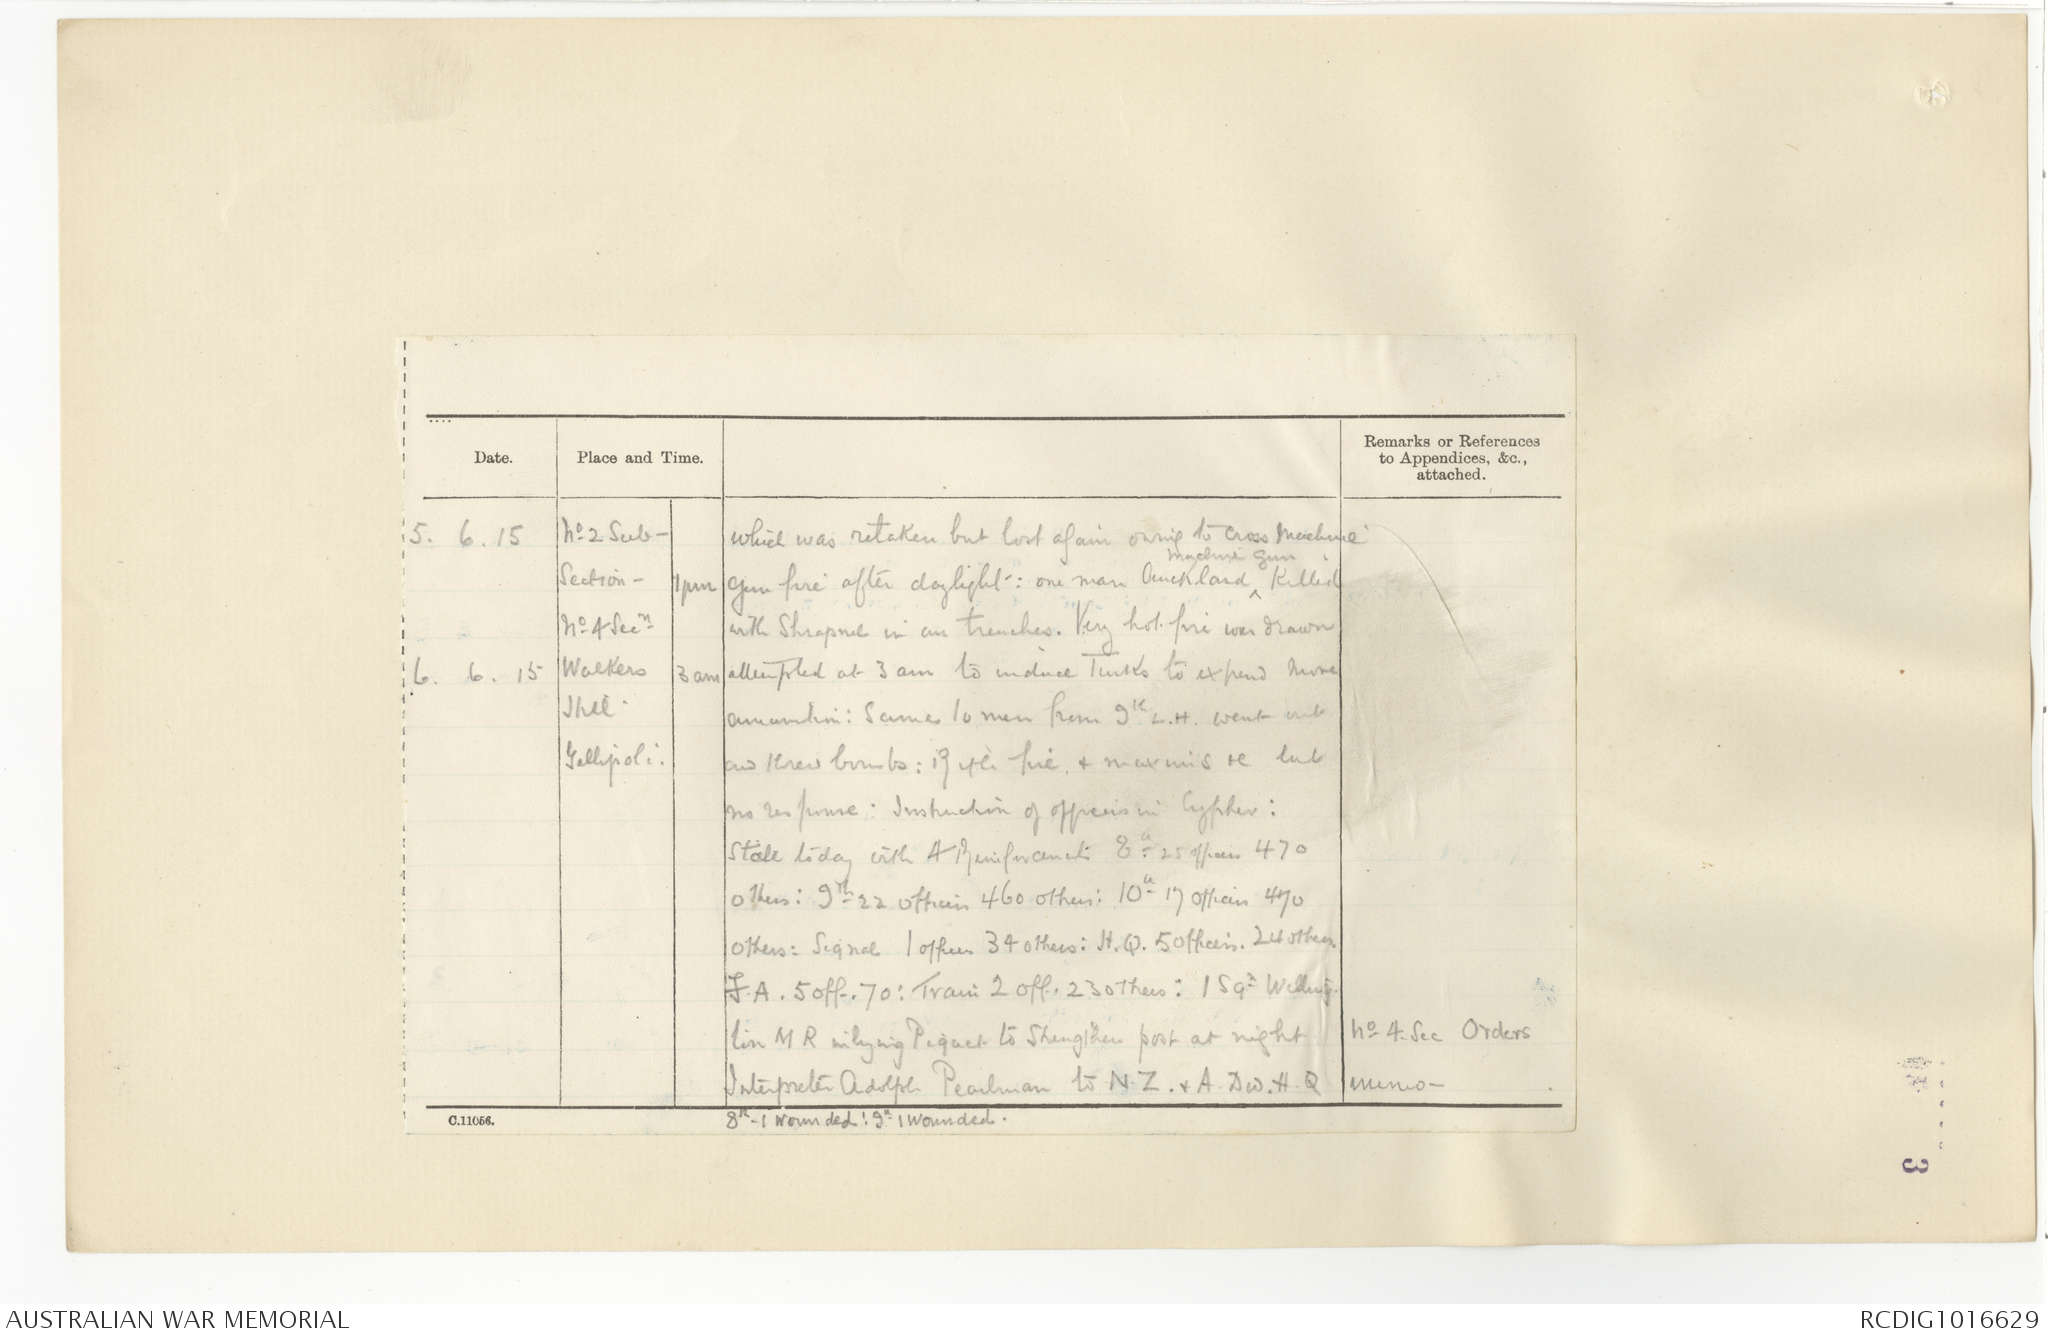 Date.
Place and Time.
Remarks or References
to Appendices, &c.,
attached.
5. 6. 15
No 2 Sub-
Section -
1pm
No 4 Secn
6. 6. 15
Walkers
3 am
Hill
Gallipoli:
which was retaken but lost again owing to cross Machine
machine gun
Gun fire after daylight: one man Auckland ^ Killed
with Shrapnel in our trenches. Very hot fire was drawn
attempted at 3 am to induce Turks to expend more
10 men from 9th L.H. went out
and threw bombs: Rifle fire & maxims &c but
no response: Instruction of officers in Cypher:
State today with 4 Reinforcements 8th 25 officers 470
others: 9th 22 officers 460 others: 10th 17 officers 470
others: Signal 1 officer 34 others: H.Q. 5 officers. 24 others.
F.A. 5 off. 70: Train 2 off. 23 others: 1 Sqn Welling-
ton M R inlying Piquet to Strengthen post at night
Interpreter Adolph Pearlman to N.Z. & A. Div. H.Q
No 4. Sec Orders
memo-
C.11056.
8th - 1 wounded: 9th 1 wounded.
3
AUSTRALIAN WAR MEMORIAL
RCDIG1016629